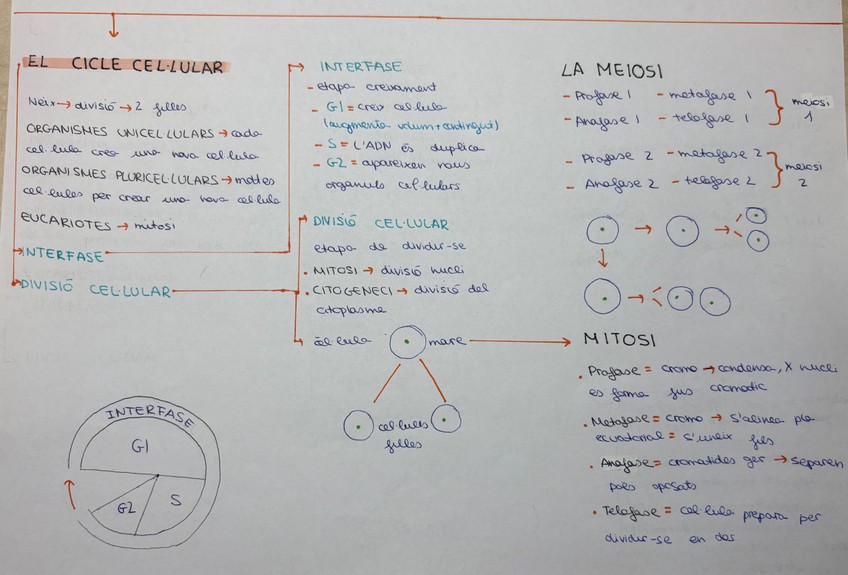 EL CICLE CEL·LULAR
Neix → divisió → 2 filles
ORGANISMES UNICEL·LULARS → cada
cèl·lula crea una nova cèl·lula
ORGANISMES PLURICEL·LULARS → moltes
cèl·lules per crear una nova cèl·lula
EUCARIOTES → mitosi
INTERFASE
DIVISIÓ CEL·LULAR
INTERFASE
G1
G2
S
INTERFASE
- etapa creixament
- G1 = creix cel·lula
(augmenta volum + contingut)
- S = L'ADN és duplica
- G2 = apareixen nous
orgànuls cel·lulars
DIVISIÓ CEL·LULAR
etapa de dividir-se
· MITOSI → divisió nucli
· CITOGENECI → divisió del
citoplasme
cèl·lula mare
cel·lules
filles
LA MEIOSI
- Profase 1 - metafase 1
- Anafase 1 - telofase 1
meiosi
1
- Profase 2 - metafase 2
- Anafase 2 - telofase 2
meiosi
2
MITOSI
· Profase = cromo → condensa, X nucli
es forma fus cromatic
· Metafase = cromo → s'alinea pla
ecuatorial = s'uneix fus
· Anafase = cromatides ger → separen
pols oposats
· Telofase = cel·lula prepara per
dividir-se en dos